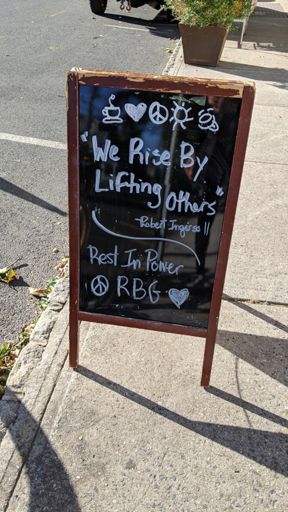 "We Rise By
Lifting Others"
Robert Ingersoll
Rest In Power
RBG